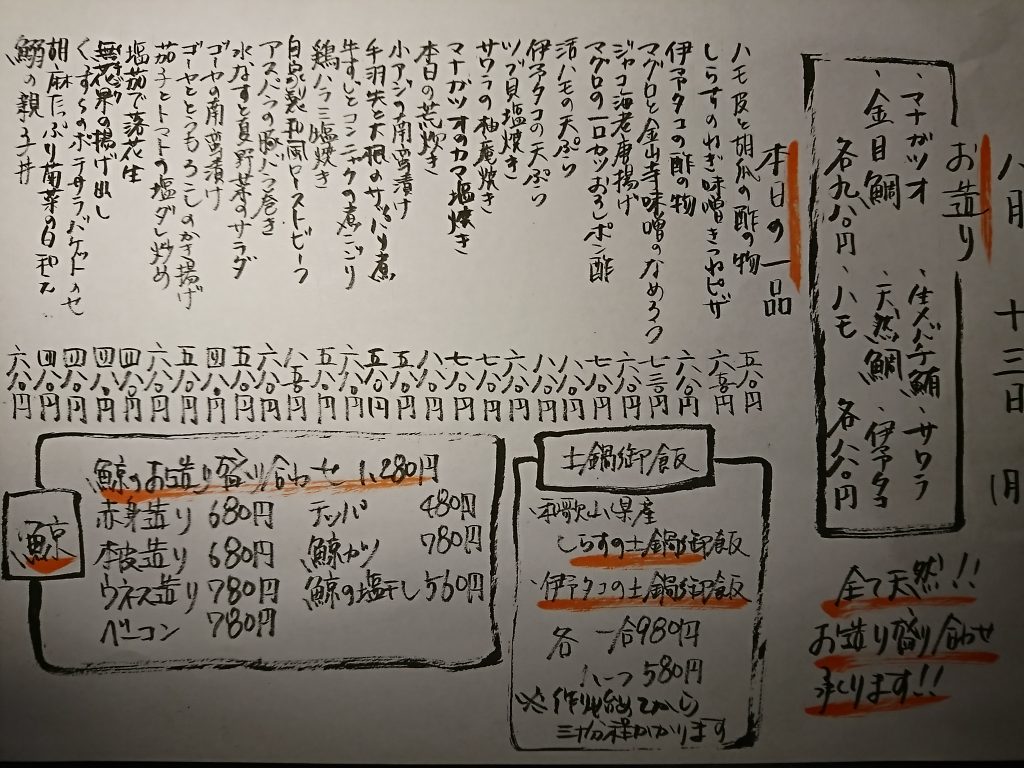 八月 十三日 月
お造り
・マナガツオ ・生メバチ鮪 ・サワラ
・金目鯛 ・天然鯛 ・伊予タコ
各九八〇円 ・ハモ 各八八〇円
全て天然!!
お造り盛り合わせ
承ります!!
本日の一品
ハモ皮と胡瓜の酢の物 五八〇円
しらすのねぎ味噌きつねピザ 六五〇円
伊予タコの酢の物 六八〇円
マグロと金山寺味噌のなめろう 七三〇円
ジャコ海老唐揚げ 六八〇円
マグロの一口カツおろしポン酢 七八〇円
活ハモの天ぷら 八八〇円
伊予タコの天ぷら 八八〇円
ツブ貝塩焼き 六八〇円
サワラの柚庵焼き 七八〇円
マナガツオのカマ塩焼き 七八〇円
本日の荒炊き 八八〇円
小アジの南蛮漬け 五八〇円
手羽先と大根のサッパリ煮 五八〇円
牛すじとコンニャクの煮こごり 六八〇円
鶏ハラミ塩焼き 五八〇円
自家製和風ローストビーフ 八五〇円
アスパラの豚バラ巻き 六八〇円
水なすと夏野菜のサラダ 五八〇円
ゴーヤの南蛮漬け 四八〇円
ゴーヤととうもろこしのかき揚げ 五八〇円
茄子とトマトの塩ダレ炒め 六八〇円
塩茹で落花生 四八〇円
無花果の揚げ出し 四八〇円
くずきりのポテサラバケットのせ 四八〇円
胡麻たっぷり南京の白和え 四八〇円
鰯の親子丼 六八〇円
土鍋御飯
・和歌山県産
しらすの土鍋御飯
・伊予タコの土鍋御飯
各 一合980円
ハーフ 580円
※作り始めてから
三十分程かかります
鯨
鯨のお造り盛り合わせ 1,280円
赤身造り 680円 テッパ 480円
本皮造り 680円 鯨カツ 780円
ウネス造り 780円 鯨の塩干し 560円
ベーコン 780円